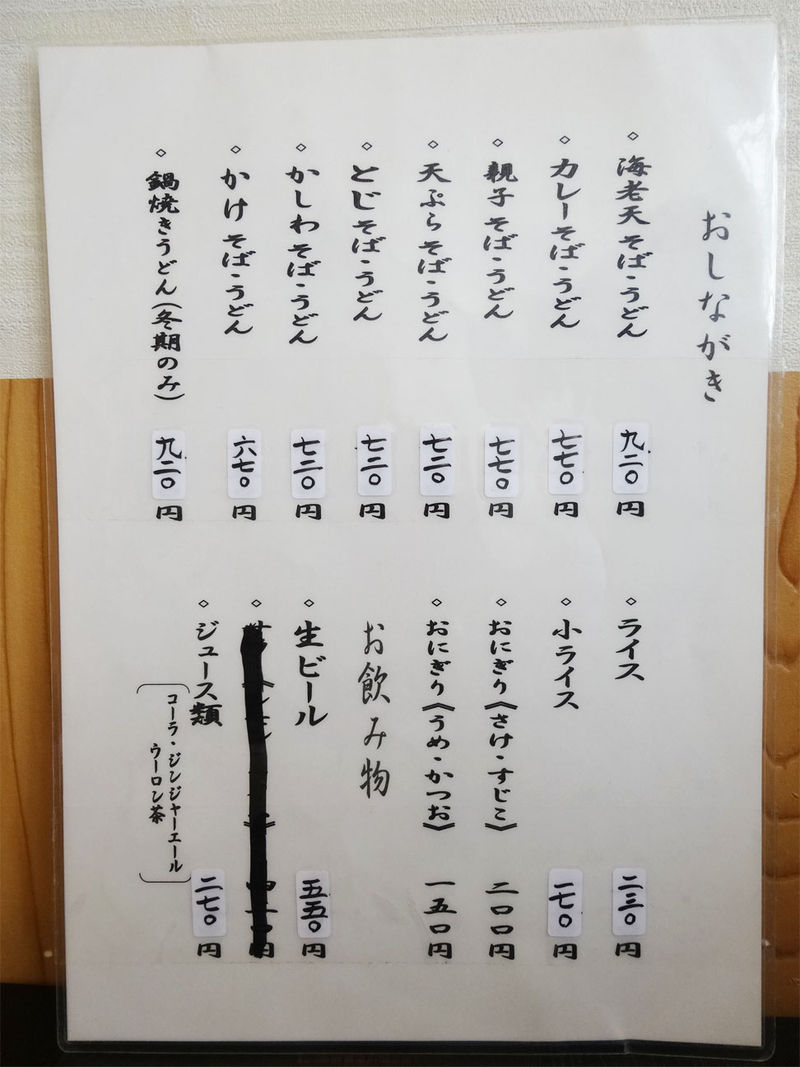 おしながき
◇海老天そば・うどん 九二〇円
◇カレーそば・うどん 七七〇円
◇親子そば・うどん 七七〇円
◇天ぷらそば・うどん 七二〇円
◇とじそば・うどん 七二〇円
◇かしわそば・うどん 七二〇円
◇かけそば・うどん 六七〇円
◇鍋焼きうどん(冬期のみ) 九二〇円
◇ライス 二三〇円
◇小ライス 一七〇円
◇おにぎり《さけ・すじこ》 二〇〇円
◇おにぎり《うめ・かつお》 一五〇円
お飲み物
◇生ビール 五五〇円
◇ジュース類 二七〇円
(コーラ・ジンジャーエール
ウーロン茶)